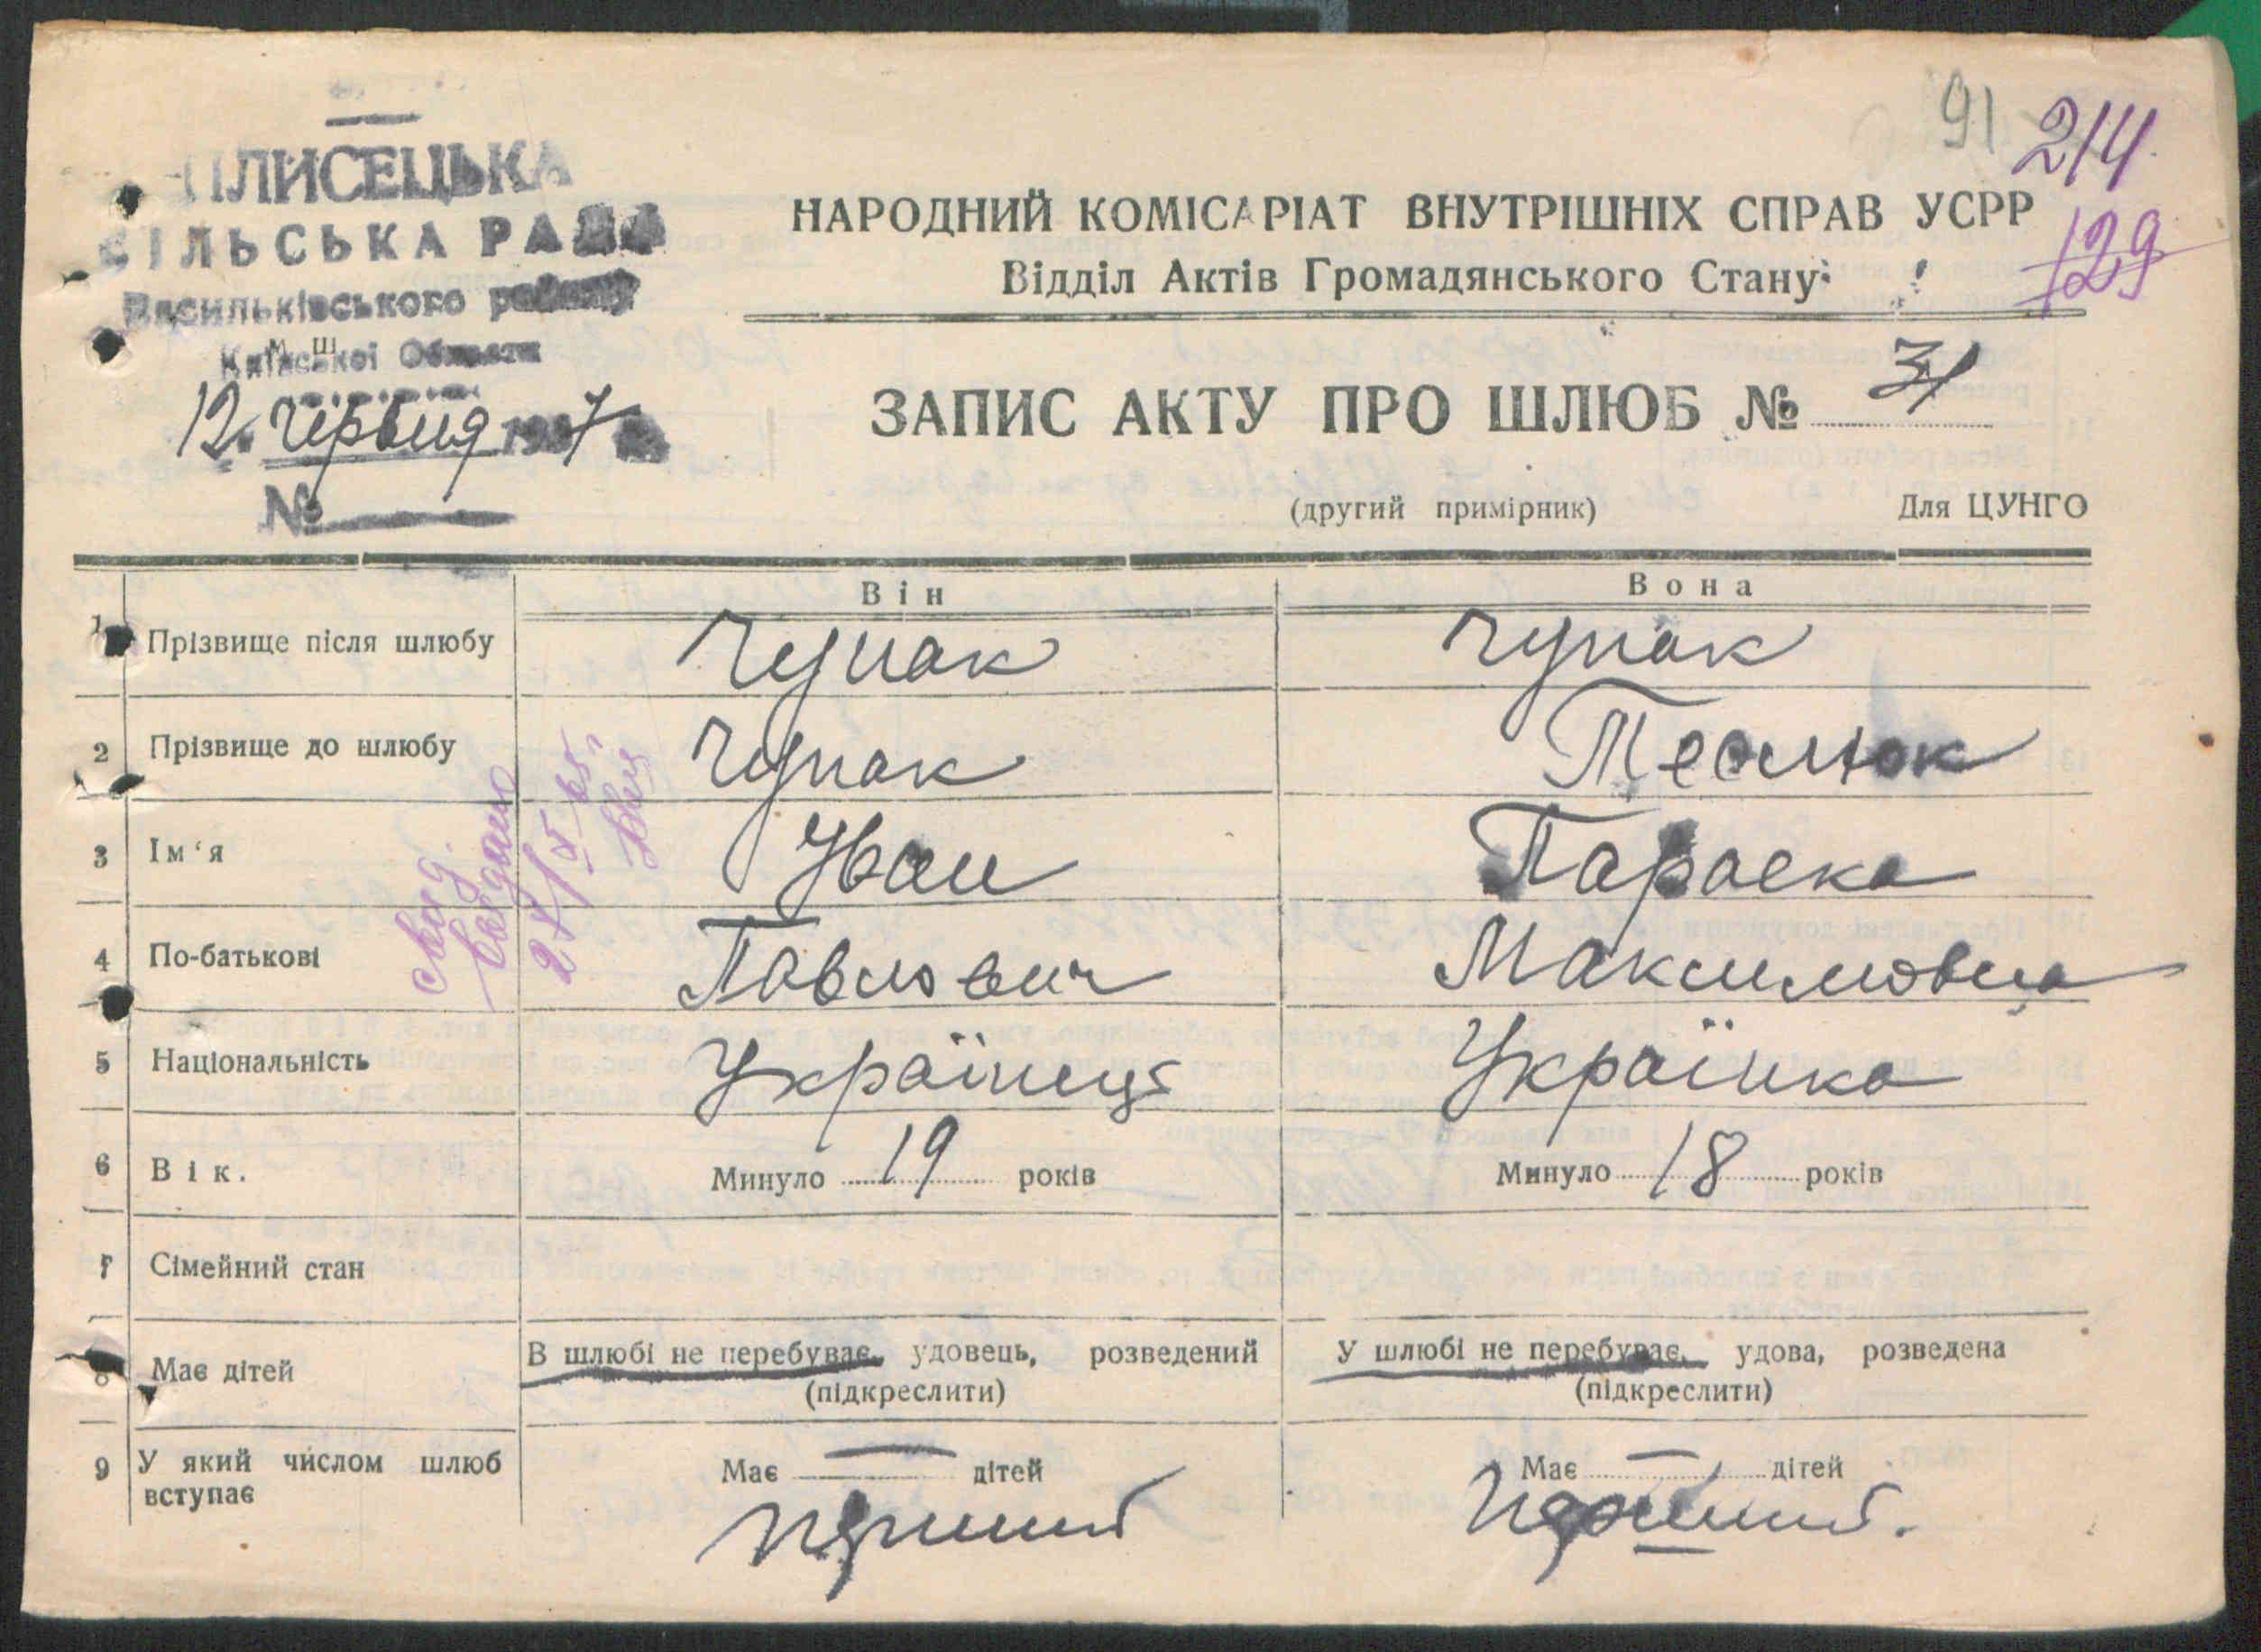 91
214
ПЛИСЕЦЬКА
СІЛЬСЬКА РАДА
Васильківського району
Київської Області
м. ш.
12. червня 1937
№
129
НАРОДНИЙ КОМІСАРІАТ ВНУТРІШНІХ СПРАВ УСРР
Відділ Актів Громадянського Стану
ЗАПИС АКТУ ПРО ШЛЮБ № 31
(другий примірник) Для ЦУНГО
Він Вона
1 Прізвище після шлюбу Чупак Чупак
2 Прізвище до шлюбу Чупак Теслюк
3 Ім‘я Іван Параска
4 По-батькові Павлович Максимовна
5 Національність Українець Українка
6 Вік. Минуло 19 років Минуло 18 років
7 Сімейний стан
8 Має дітей В шлюбі не перебуває, удовець, розведений У шлюбі не перебуває, удова, розведена
(підкреслити) (підкреслити)
9 У який числом шлюб вступає Має — дітей Має — дітей
перший перший.